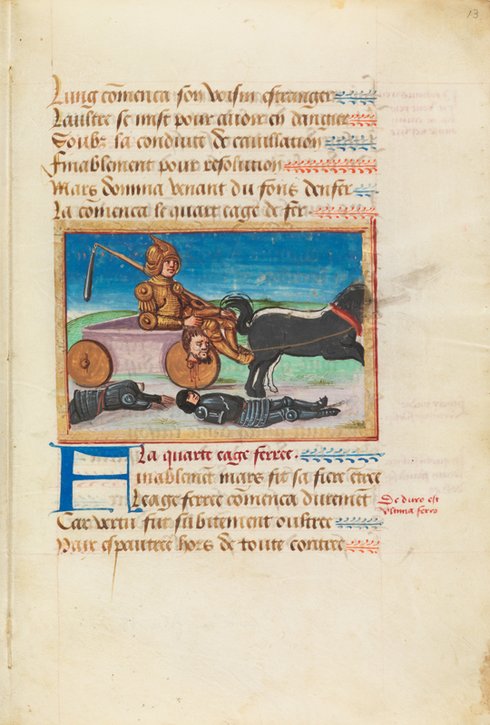 13
Lung cõmenca son voisin estranger
Laultre se mist pour auoir en dangier
Soubz la conduite de cauillation
Finablement pour resolution
Mars domina venant du fons denfer
La cõmenca le quart eage de fer.
La quarte eage ferree.
Finablemẽt mars fit sa fiere ẽtree
Leage ferree cõmenca durement
De duro est
vltima ferro
Car vertu fut subitement oultree
Paix espautree hors de toute contree